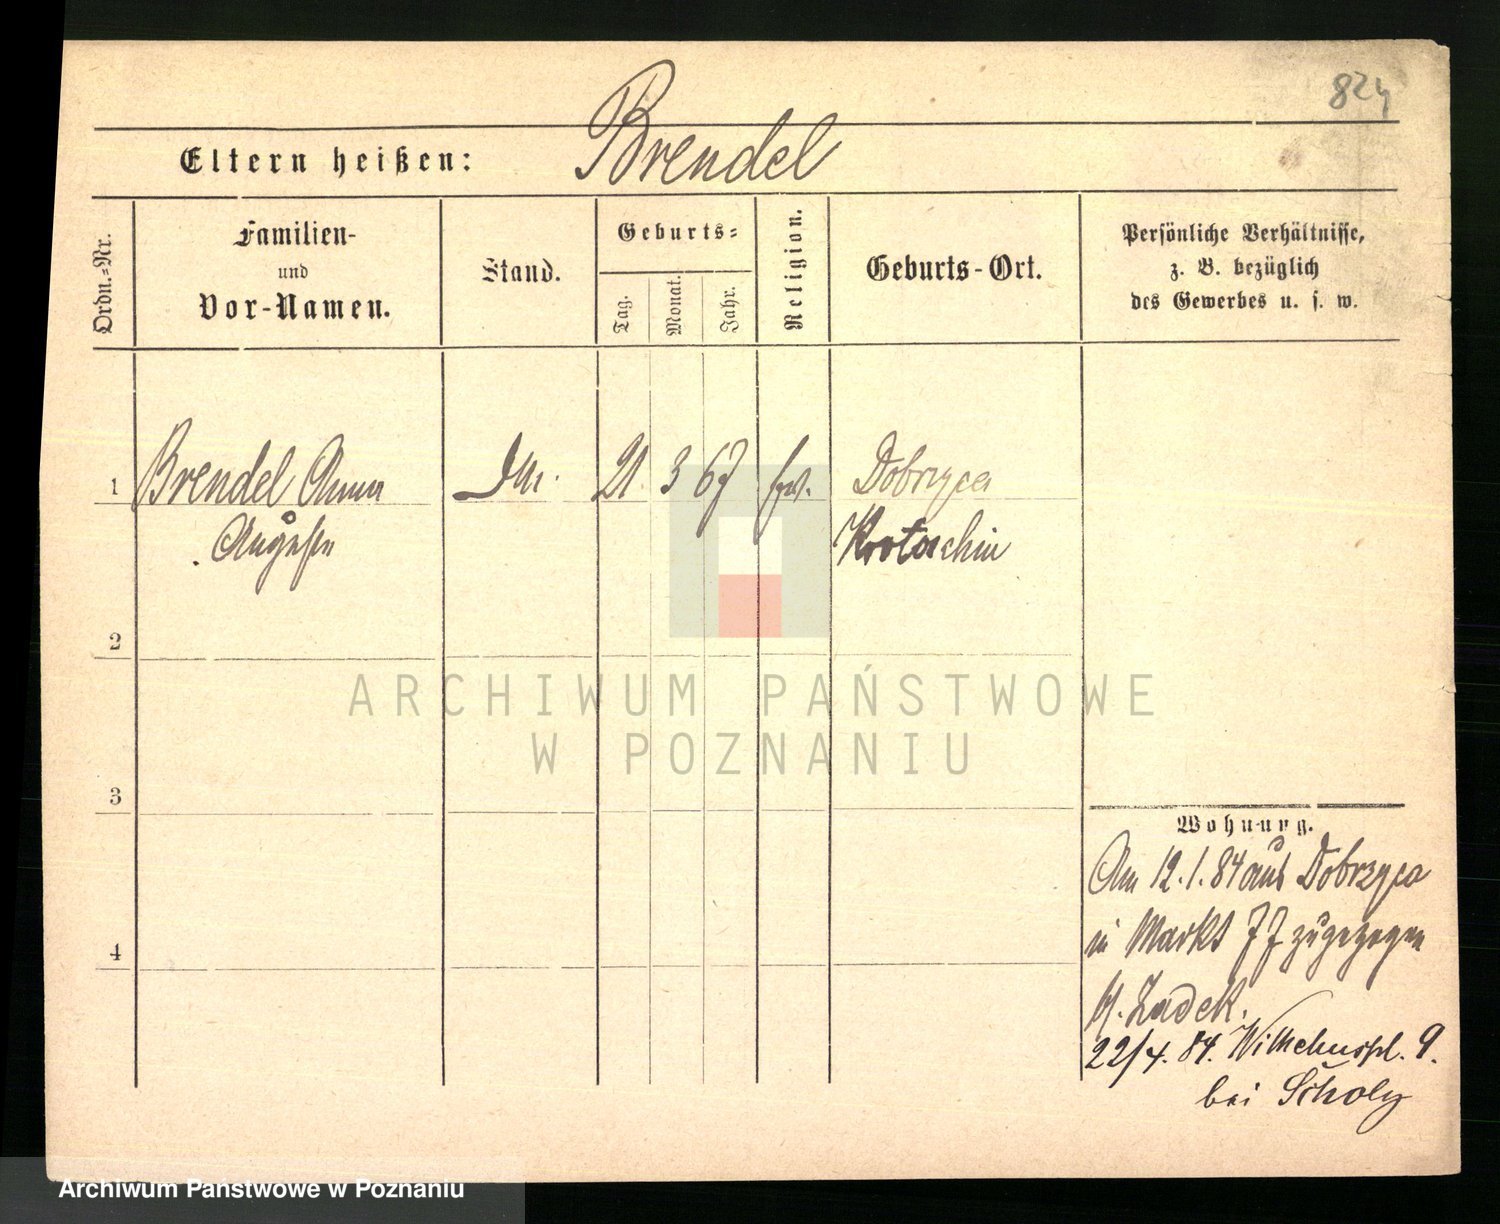 824
Eltern heißen: Brendel
Ordn.-Nr.
Familien-
und
Vor-Namen.
Stand.
Geburts-
Tag.
Monat.
Jahr.
Religion.
Geburts-Ort.
Persönliche Verhältnisse,
z. B. bezüglich
des Gewerbes u. s. w.
1 Brendel Anna 21 3 67 Dobrzyca
Auguste Krotoschin
2
3
4
Wohnung.
Am 12.1.84 aus Dobrzyca
in Markt 77 zugezogen
Zadek.
22/4. 84. Wilhelmspl. 9.
bei Scholz
ARCHIWUM PAŃSTWOWE
W POZNANIU
Archiwum Państwowe w Poznaniu